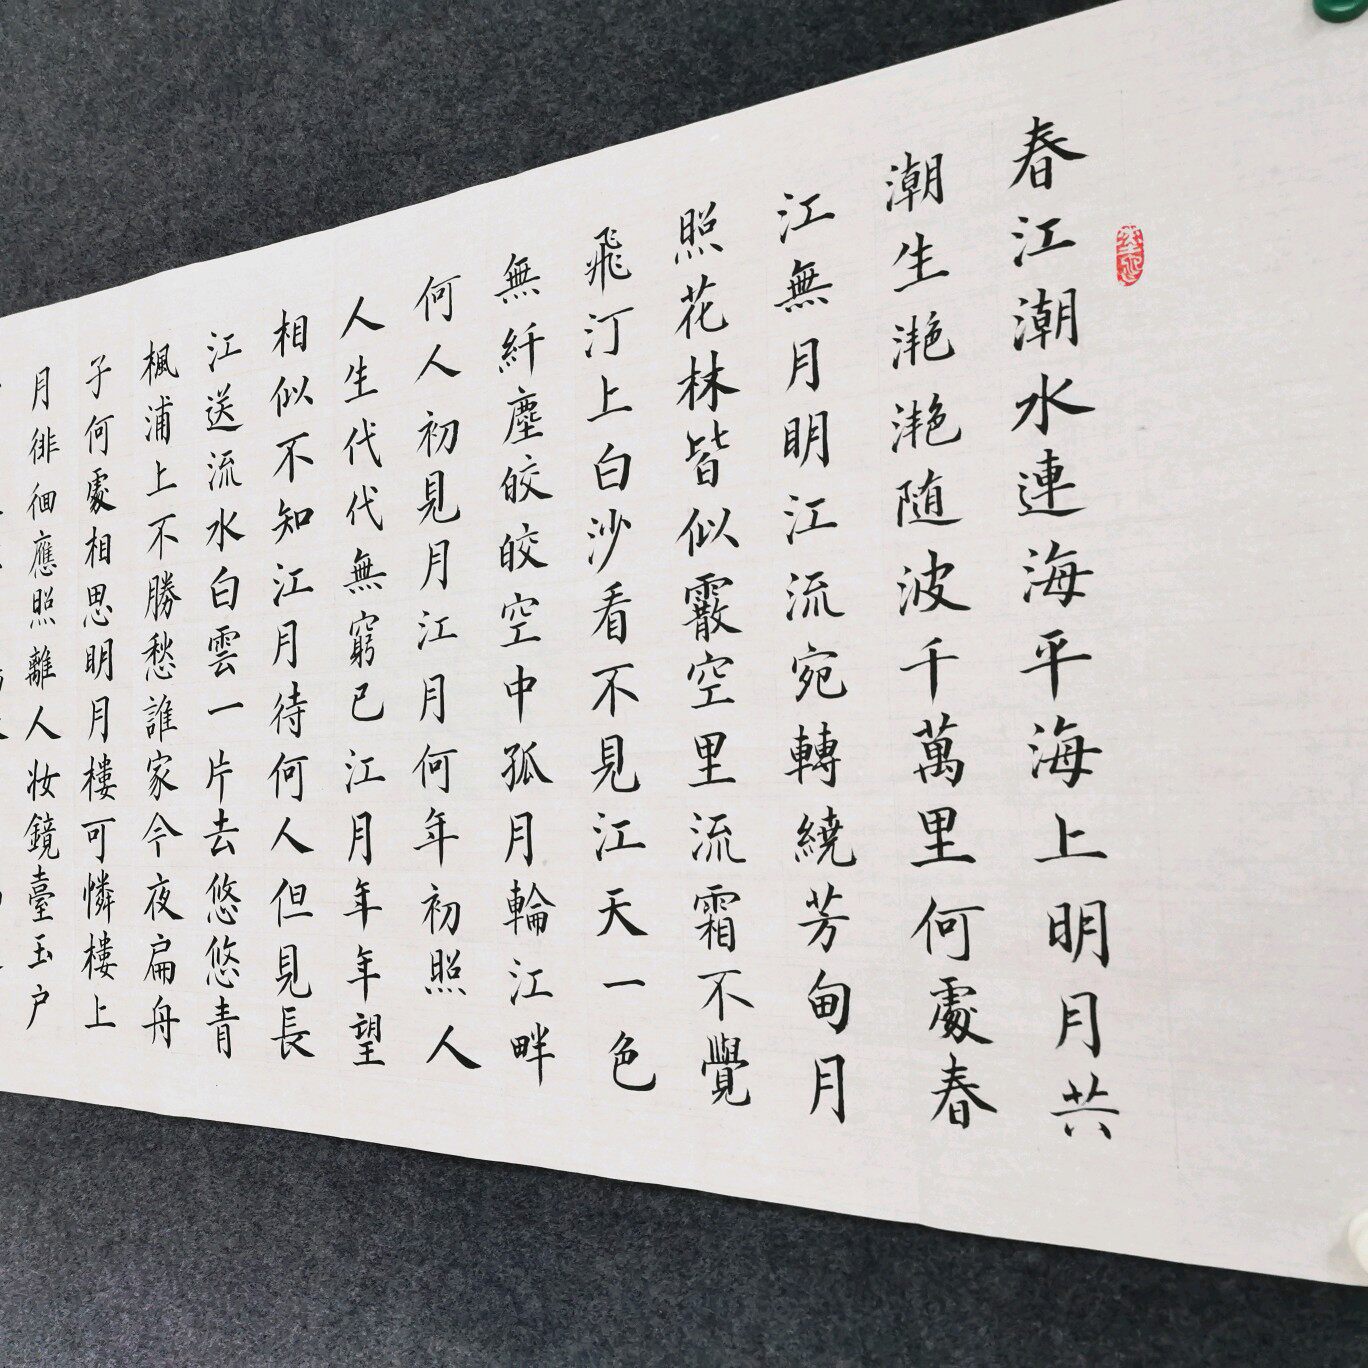 春江潮水連海平海上明月共
潮生灔灔随波千萬里何處春
江無月明江流宛轉繞芳甸月
照花林皆似霰空里流霜不覺
飛汀上白沙看不見江天一色
無纤塵皎皎空中孤月輪江畔
何人初見月江月何年初照人
人生代代無窮已江月年年望
相似不知江月待何人但見長
江送流水白雲一片去悠悠青
楓浦上不勝愁誰家今夜扁舟
子何處相思明月樓可憐樓上
月徘徊應照離人妆鏡臺玉户